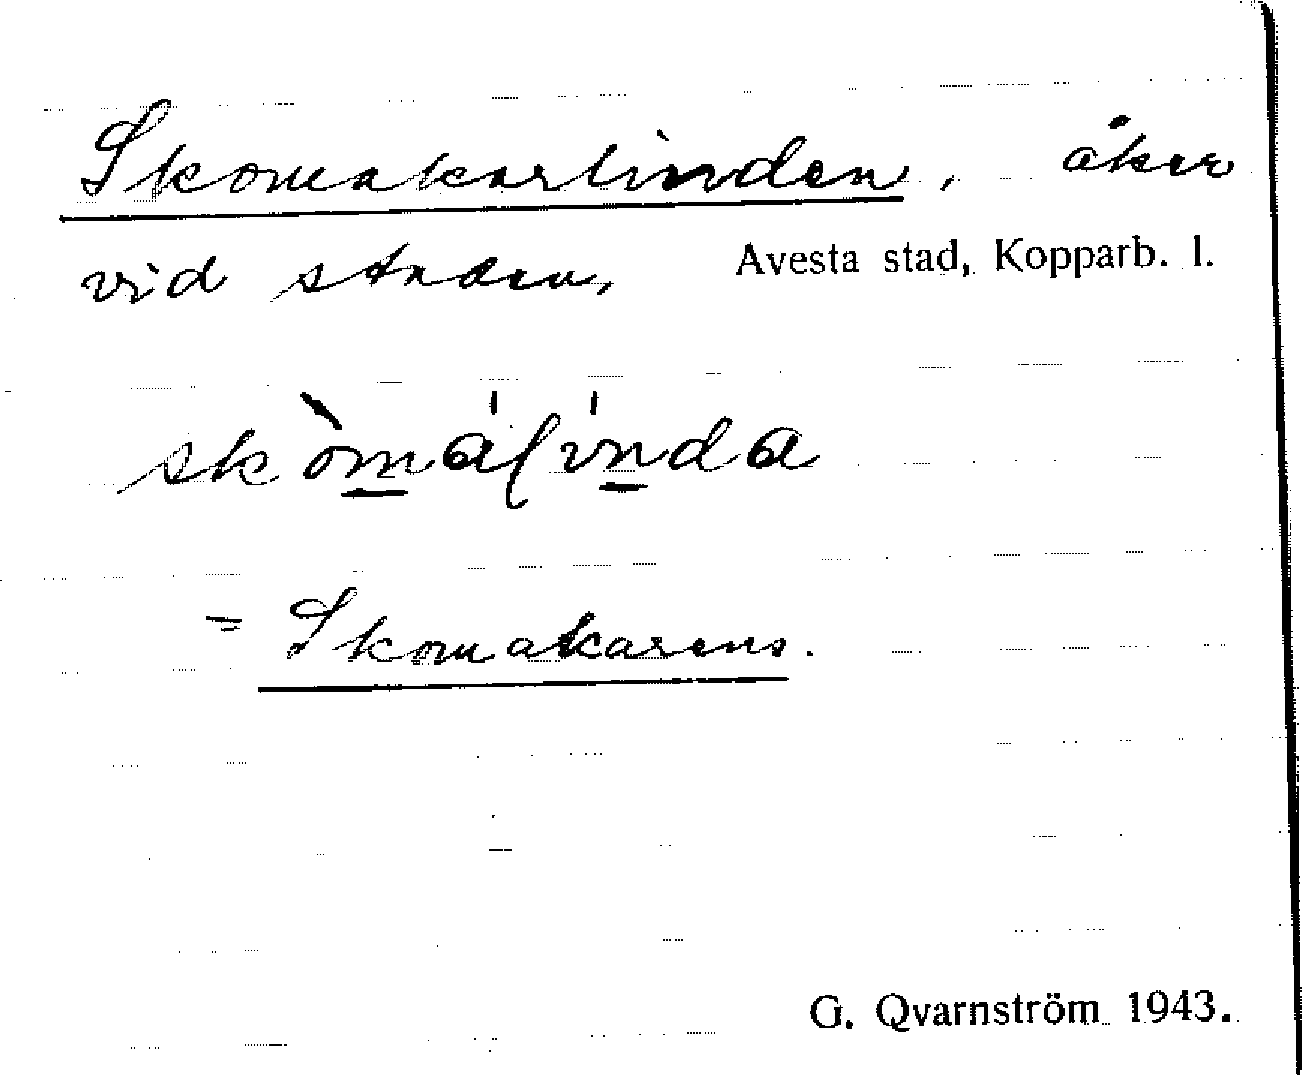 Skomakarlinden, åker
vid staden, Avesta stad, Kopparb. l.
skòmálínda
= Skomakarens.
G. Qvarnström 1943.